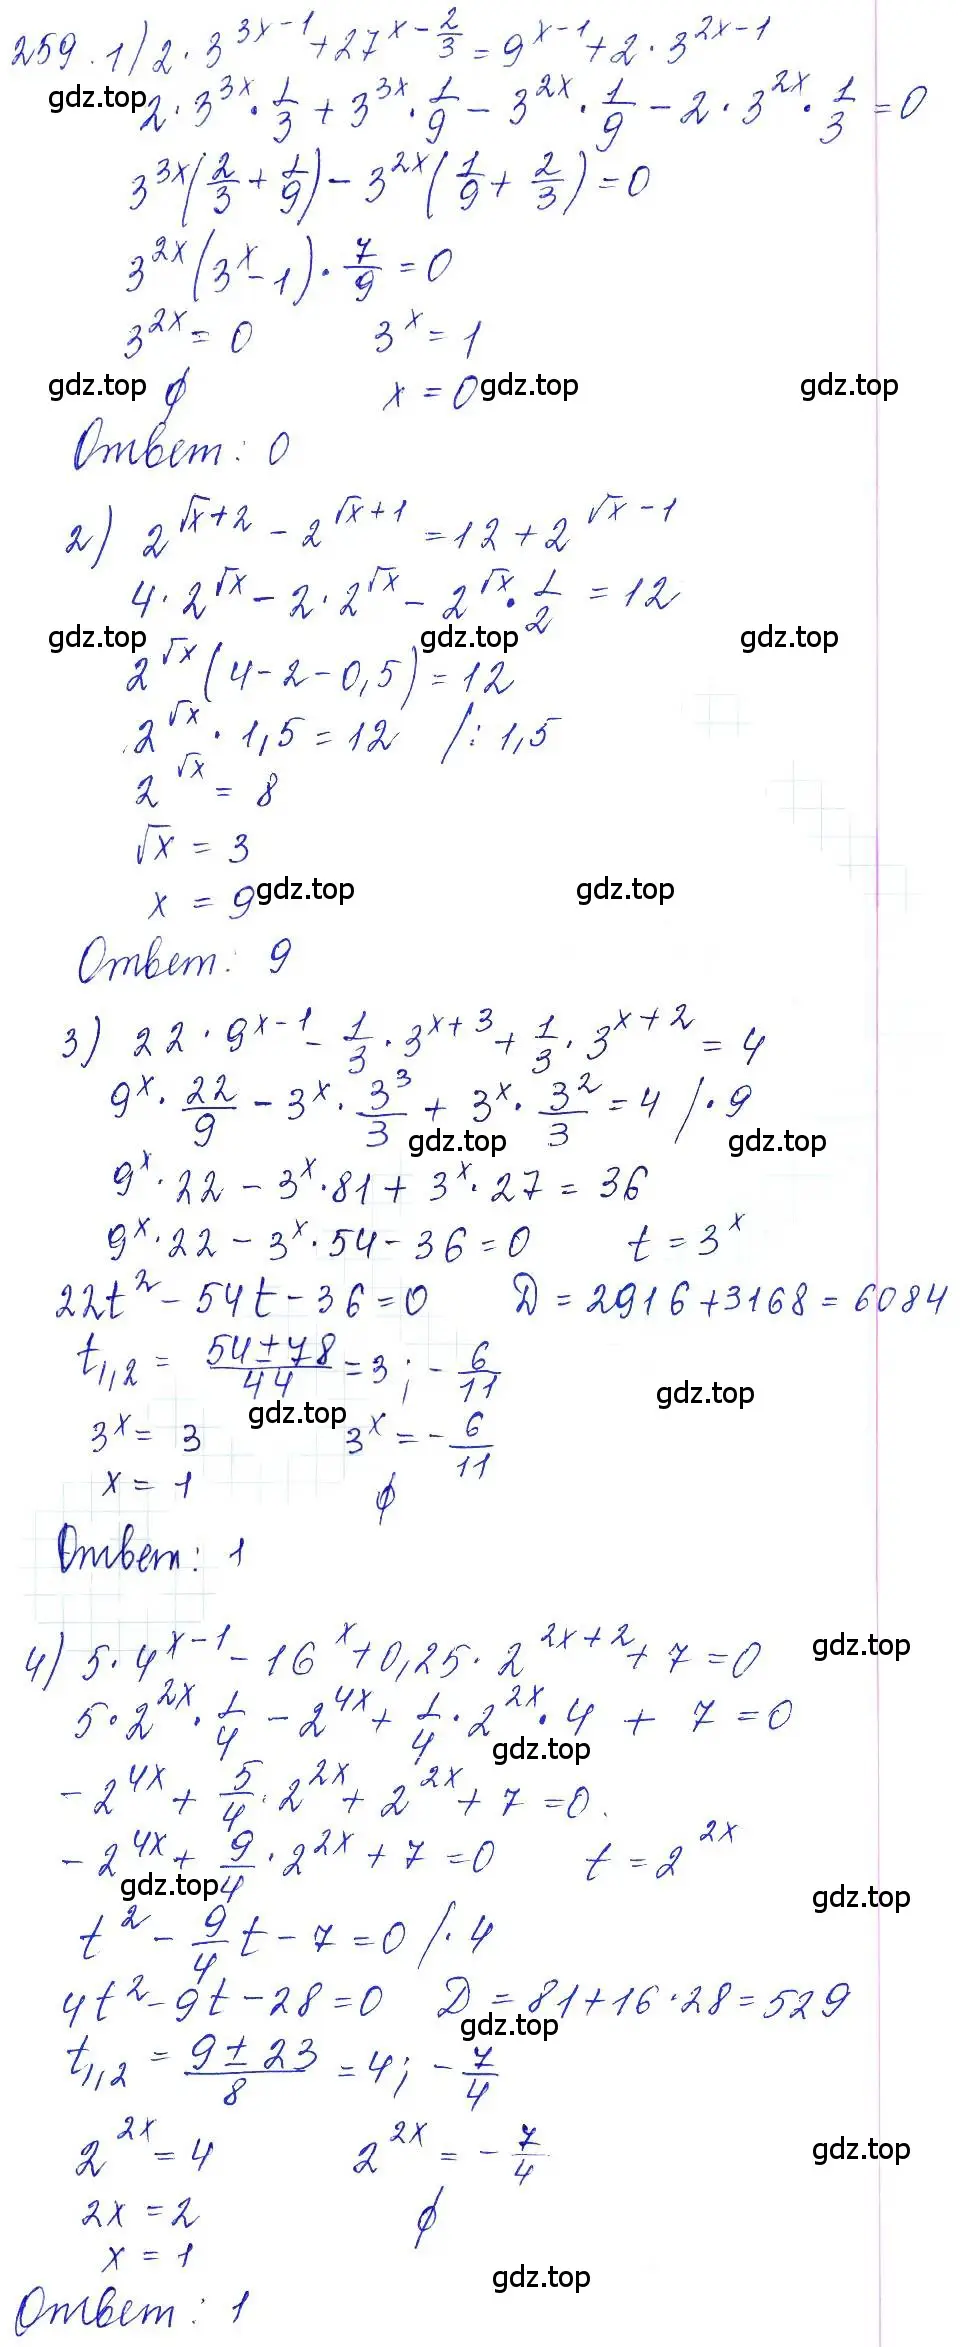 259. 1) 2 · 3^(3x-1) + 27^(x - 2/3) = 9^(x-1) + 2 · 3^(2x-1)
gdz.top
2 · 3^(3x) · 1/3 + 3^(3x) · 1/9 - 3^(2x) · 1/9 - 2 · 3^(2x) · 1/3 = 0
3^(3x) (2/3 + 1/9) - 3^(2x) (1/9 + 2/3) = 0
3^(2x) (3^x - 1) · 7/9 = 0
3^(2x) = 0 3^x = 1
gdz.top ∅ x = 0 gdz.top gdz.top
Ответ: 0
2) 2^(√x+2) - 2^(√x+1) = 12 + 2^(√x-1)
4 · 2^(√x) - 2 · 2^(√x) - 2^(√x) · 1/2 = 12
gdz.top gdz.top gdz.top
2^(√x) (4 - 2 - 0,5) = 12
2^(√x) · 1,5 = 12 /: 1,5
2^(√x) = 8
√x = 3
x = 9 gdz.top gdz.top
Ответ: 9
3) 22 · 9^(x-1) - 1/3 · 3^(x+3) + 1/3 · 3^(x+2) = 4
9^x · 22/9 - 3^x · 3^3/3 + 3^x · 3^2/3 = 4 /· 9
gdz.top gdz.top
9^x · 22 - 3^x · 81 + 3^x · 27 = 36
9^x · 22 - 3^x · 54 - 36 = 0 t = 3^x
22t^2 - 54t - 36 = 0 D = 2916 + 3168 = 6084
t_1,2 = (54 ± 78)/44 = 3 ; - 6/11
gdz.top gdz.top
3^x = 3 3^x = - 6/11
x = 1 ∅
Ответ: 1
4) 5 · 4^(x-1) - 16^x + 0,25 · 2^(2x+2) + 7 = 0 gdz.top
5 · 2^(2x) · 1/4 - 2^(4x) + 1/4 · 2^(2x) · 4 + 7 = 0
gdz.top
- 2^(4x) + 5/4 · 2^(2x) + 2^(2x) + 7 = 0.
- 2^(4x) + 9/4 · 2^(2x) + 7 = 0 t = 2^(2x)
gdz.top gdz.top
t^2 - 9/4 t - 7 = 0 /· 4
4t^2 - 9t - 28 = 0 D = 81 + 16 · 28 = 529
gdz.top
t_1,2 = (9 ± 23)/8 = 4; - 7/4
2^(2x) = 4 2^(2x) = - 7/4 gdz.top
2x = 2 ∅
x = 1
gdz.top
Ответ: 1